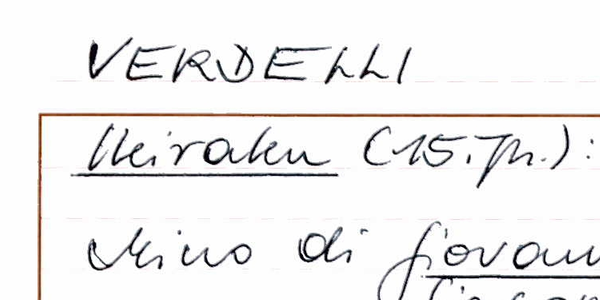 VERDELLI
Heiraten (15. Jh.):
Mino di Giovan